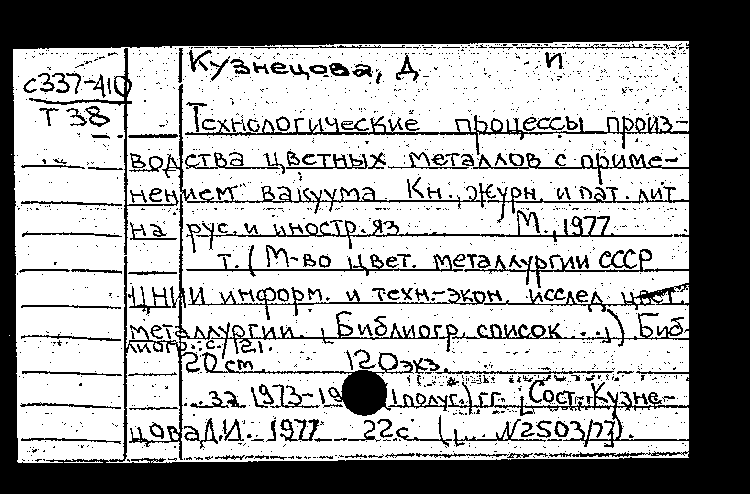 Кузнецова, Д И
с337-410
Т 38
Технологические процессы произ-
водства цветных металлов с приме-
нением вакуума Кн., журн. и пат. лит
на рус. и иностр. яз М., 1977
т. (М-во цвет. металлургии СССР
ЦНИИ информ. и техн.-экон. исслед. цвет.
металлургии. [Библиогр. список ...]) Биб-
лиогр.: с./12.
20 cm 120 экз.
...за 1973-19 (1 полуг.) гг. [Сост. Кузне-
цова Д.И. 1977 22 с. ([... №2503/77]).